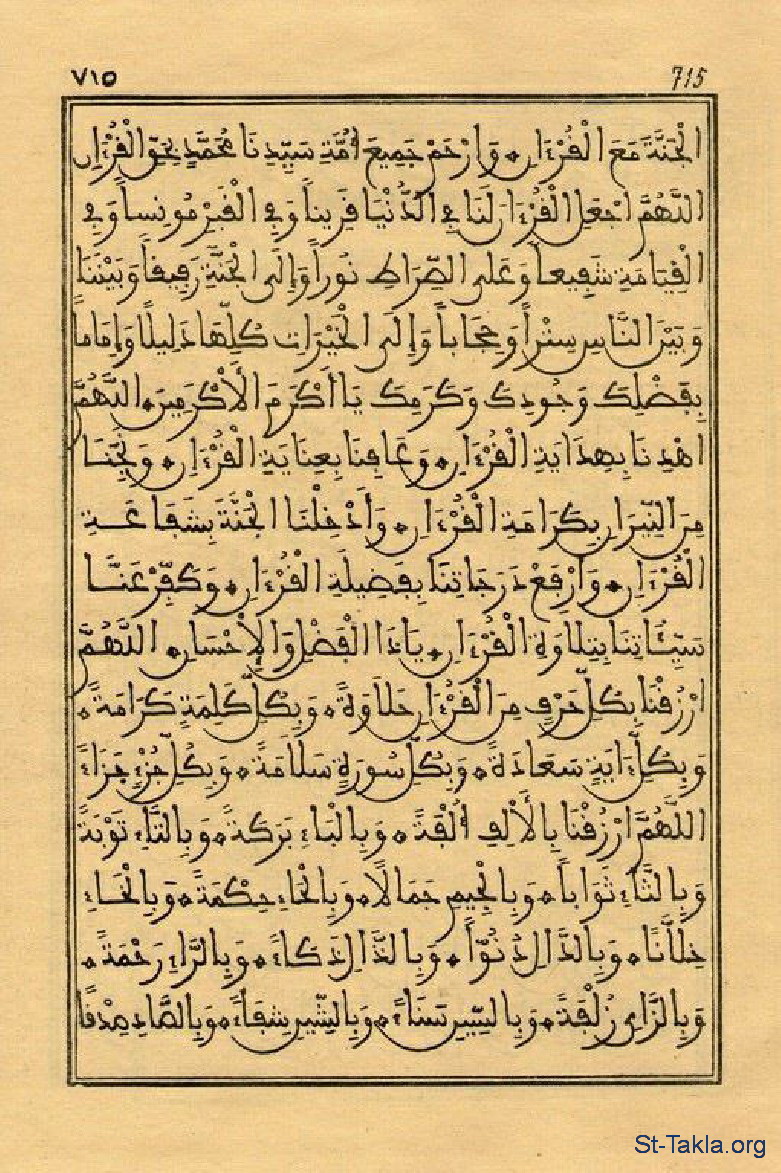 ٧١٥ 715
الْجَنَّةَ مَعَ الْقُرْءَانِ • وَارْحَمْ جَمِيعَ أُمَّةِ سَيِّدِنَا مُحَمَّدٍ بِحَقِّ الْقُرْءَانِ
اللَّهُمَّ اجْعَلِ الْقُرْءَانَ لَنَا فِي الدُّنْيَا قَرِيناً وَفِي الْقَبْرِ مُونِساً وَفِي
الْقِيَامَةِ شَفِيعاً وَعَلَى الصِّرَاطِ نُوراً وَإِلَى الْجَنَّةِ رَفِيقاً وَبَيْنَنَا
وَبَيْنَ النَّاسِ سِتْراً وَحِجَاباً وَإِلَى الْخَيْرَاتِ كُلِّهَا دَلِيلًا وَإِمَاماً
بِفَضْلِكَ وَجُودِكَ وَكَرَمِكَ يَا أَكْرَمَ الْأَكْرَمِينَ • اللَّهُمَّ
اهْدِنَا بِهِدَايَةِ الْقُرْءَانِ • وَعَافِنَا بِعِنَايَةِ الْقُرْءَانِ • وَنَجِّنَا
مِنَ النِّيرَانِ بِكَرَامَةِ الْقُرْءَانِ • وَأَدْخِلْنَا الْجَنَّةَ بِشَفَاعَةِ
الْقُرْءَانِ • وَارْفَعْ دَرَجَاتِنَا بِفَضِيلَةِ الْقُرْءَانِ • وَكَفِّرْ عَنَّا
سَيِّئَاتِنَا بِتِلَاوَةِ الْقُرْءَانِ • يَا ذَا الْفَضْلِ وَالْإِحْسَانِ • اللَّهُمَّ
ارْزُقْنَا بِكُلِّ حَرْفٍ مِنَ الْقُرْءَانِ حَلَاوَةً • وَبِكُلِّ كَلِمَةٍ كَرَامَةً •
وَبِكُلِّ ءَايَةٍ سَعَادَةً • وَبِكُلِّ سُورَةٍ سَلَامَةً • وَبِكُلِّ جُزْءٍ جَزَاءً
اللَّهُمَّ ارْزُقْنَا بِالْأَلِفِ أُلْفَةً • وَبِالْبَاءِ بَرَكَةً • وَبِالتَّاءِ تَوْبَةً
وَبِالثَّاءِ ثَوَاباً • وَبِالْجِيمِ جَمَالًا • وَبِالْحَاءِ حِكْمَةً • وَبِالْخَاءِ
خِلَّاناً • وَبِالدَّالِ دُنُوّاً • وَبِالذَّالِ ذَكَاءً • وَبِالرَّاءِ رَحْمَةً •
وَبِالزَّايِ زُلْفَةً • وَبِالسِّينِ سَنَاءً • وَبِالشِّينِ شِفَاءً • وَبِالصَّادِ صِدْقاً
St-Takla.org